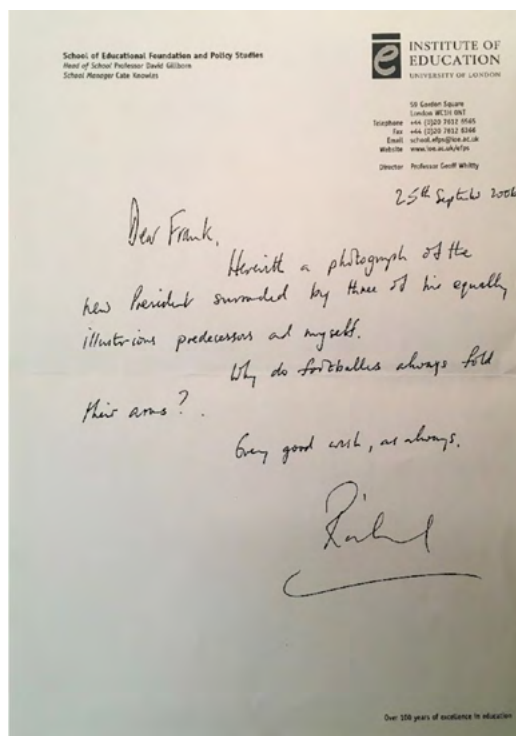 School of Educational Foundation and Policy Studies
Head of School Professor David Gillborn
School Manager Cate Knowles
e
INSTITUTE OF
EDUCATION
UNIVERSITY OF LONDON
London WC1H 0NT
Telephone +44 (0)20 7612
Fax +44 (0)20 7612
Email school.efps@ioe.ac.uk
Website www.ioe.ac.uk/efps
Director Professor Geoff Whitty
25th September 2006
Dear Frank,
Herewith a photograph of the
new President surrounded by three of his equally
illustrious predecessors and myself.
Why do footballers always fold
their arms?
Every good wish, as always,
Richard
Over 100 years of excellence in education